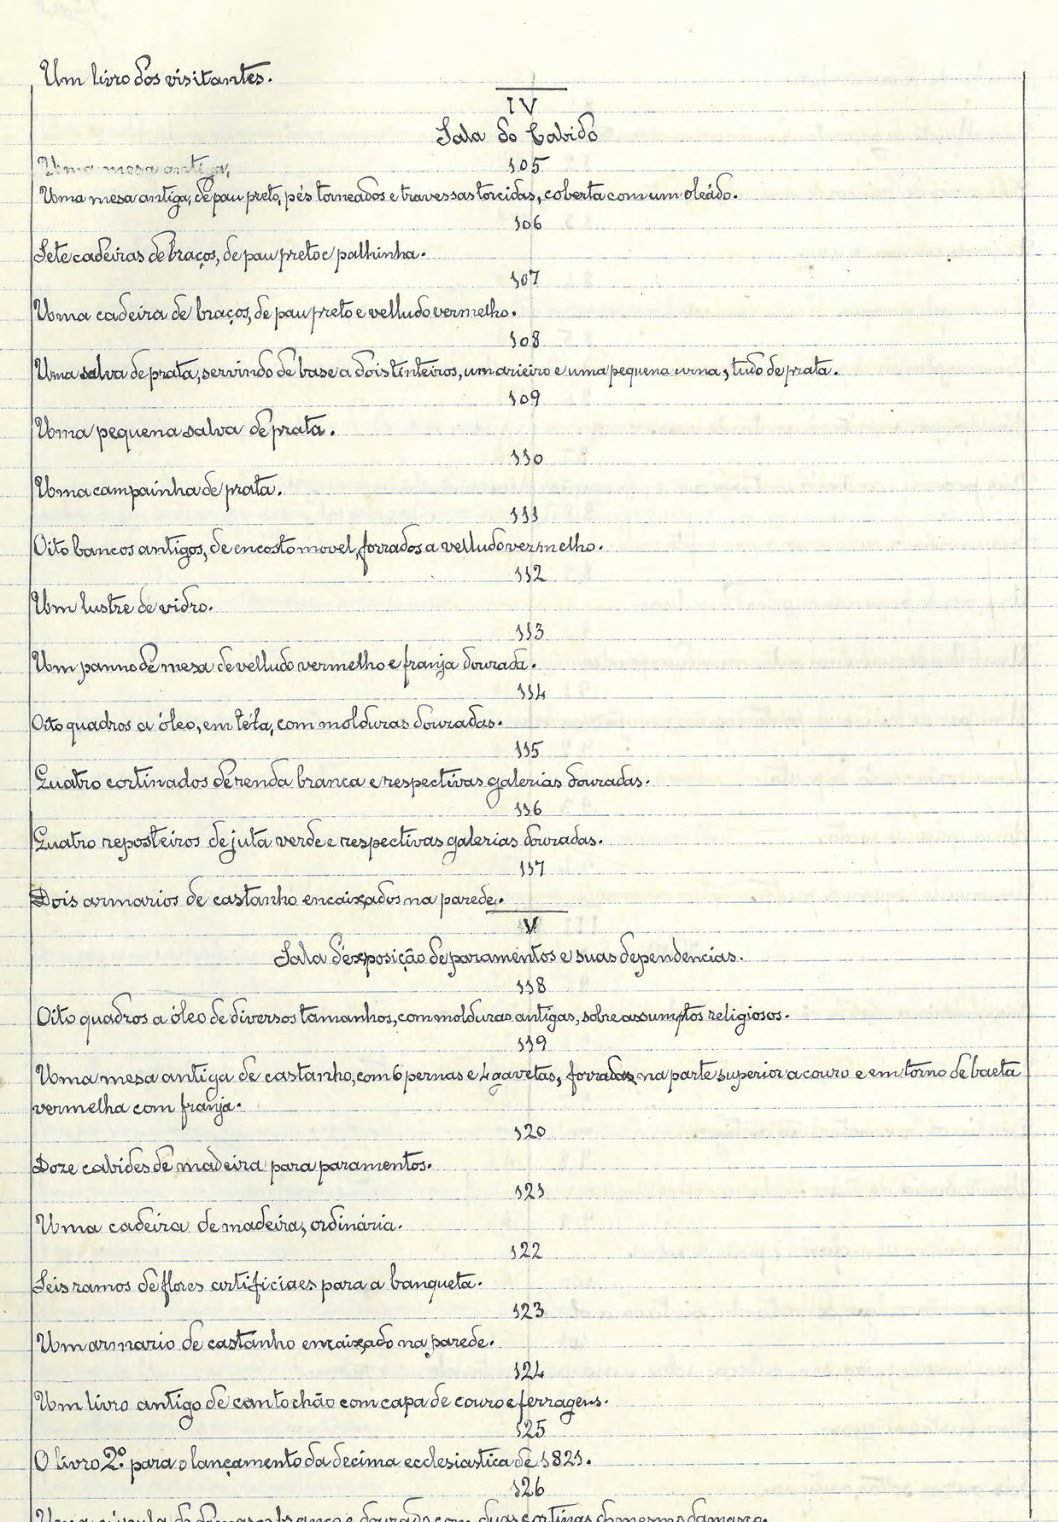 Um livro dos visitantes.
IV
Sala do Cabido
105
Uma mesa antiga,
Uma mesa antiga, de pau preto, pés torneados e travessas torcidas, coberta com um oleádo.
106
Sete cadeiras de braços, de pau preto e palhinha.
107
Uma cadeira de braços, de pau preto e velludo vermelho.
108
Uma salva de prata, servindo de base a dois tinteiros, um arieiro e uma pequena urna, tudo de prata.
109
Uma pequena salva de prata.
110
Uma campainha de prata.
111
Oito bancos antigos, de encosto movel, forrados a velludo vermelho.
112
Um lustre de vidro.
113
Um panno de mesa de velludo vermelho e franja dourada.
114
Oito quadros a óleo, em téla, com molduras douradas.
115
Quatro cortinados de renda branca e respectivas galerias douradas.
116
Quatro reposteiros de juta verde e respectivas galerias douradas.
117
Dois armarios de castanho encaixados na parede.
V
Sala d'exposição de paramentos e suas dependencias.
118
Oito quadros a óleo de diversos tamanhos, com molduras antigas, sobre assumptos religiosos.
119
Uma mesa antiga de castanho, com 6 pernas e 4 gavetas, forradas na parte superior a couro e em torno de baeta
vermelha com franja.
120
Doze cabides de madeira para paramentos.
121
Uma cadeira de madeira, ordinária.
122
Seis ramos de flores artificiaes para a banqueta.
123
Um armario de castanho encaixado na parede.
124
Um livro antigo de cantochão com capa de couro e ferragens.
125
O livro 2.º para o lançamento da decima ecclesiastica de 1821.
126
Uma de damasco branco e dourado com duas cortinas do mesmo damasco.